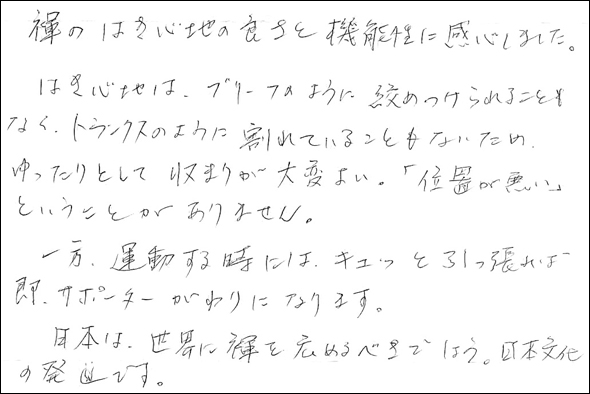 褌のはき心地の良さと機能性に感心しました。
はき心地は、ブリーフのように絞めつけられることも
なく、トランクスのように割れていることもないため、
ゆったりとして収まりが大変よい。「位置が悪い」
ということがありません。
一方、運動する時には、キュッと引っ張れば
即、サポーターがわりになります。
日本は、世界に褌を広めるべきでしょう。日本文化
の発進です。